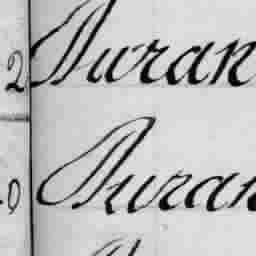 2 Duran
0 Duran